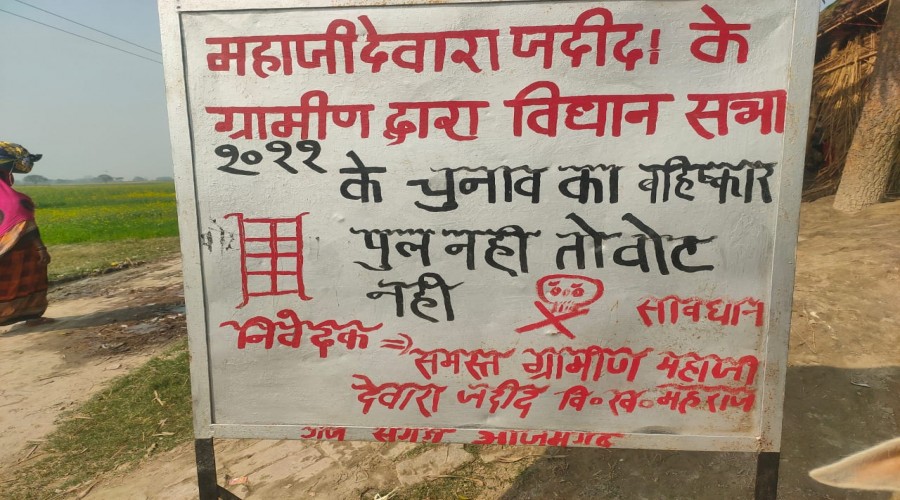 महाजी देवारा जदीद। के
ग्रामीण द्वारा विधान सभा
२०२२ के चुनाव का बहिष्कार
पुल नही तो वोट
नही
सावधान
निवेदक ⇒
समस्त ग्रामीण महाजी
देवारा जदीद वि॰ख॰ महराज
गंज सगड़ी आजमगढ़